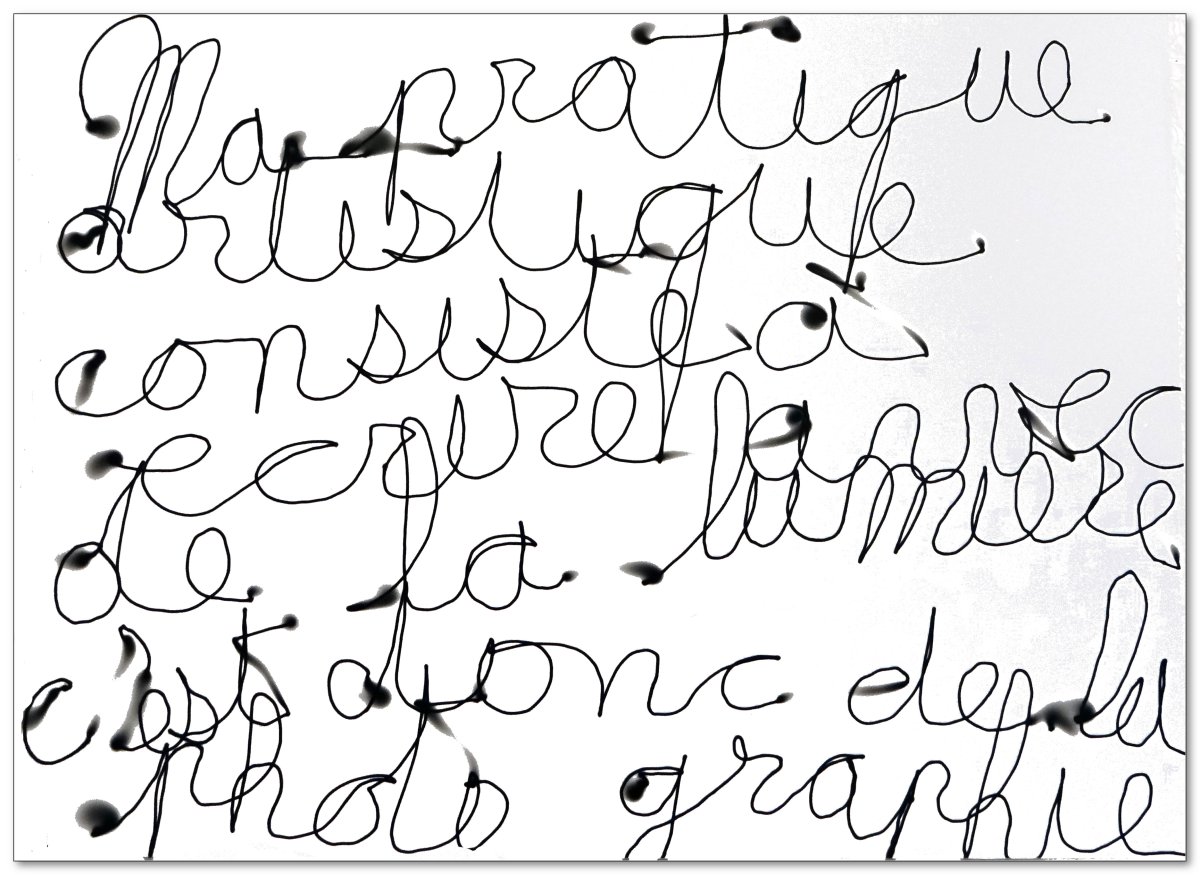 Ma pratique
artistique
consiste à
ecrire avec
de la lumière
c'est donc de la
photo graphie